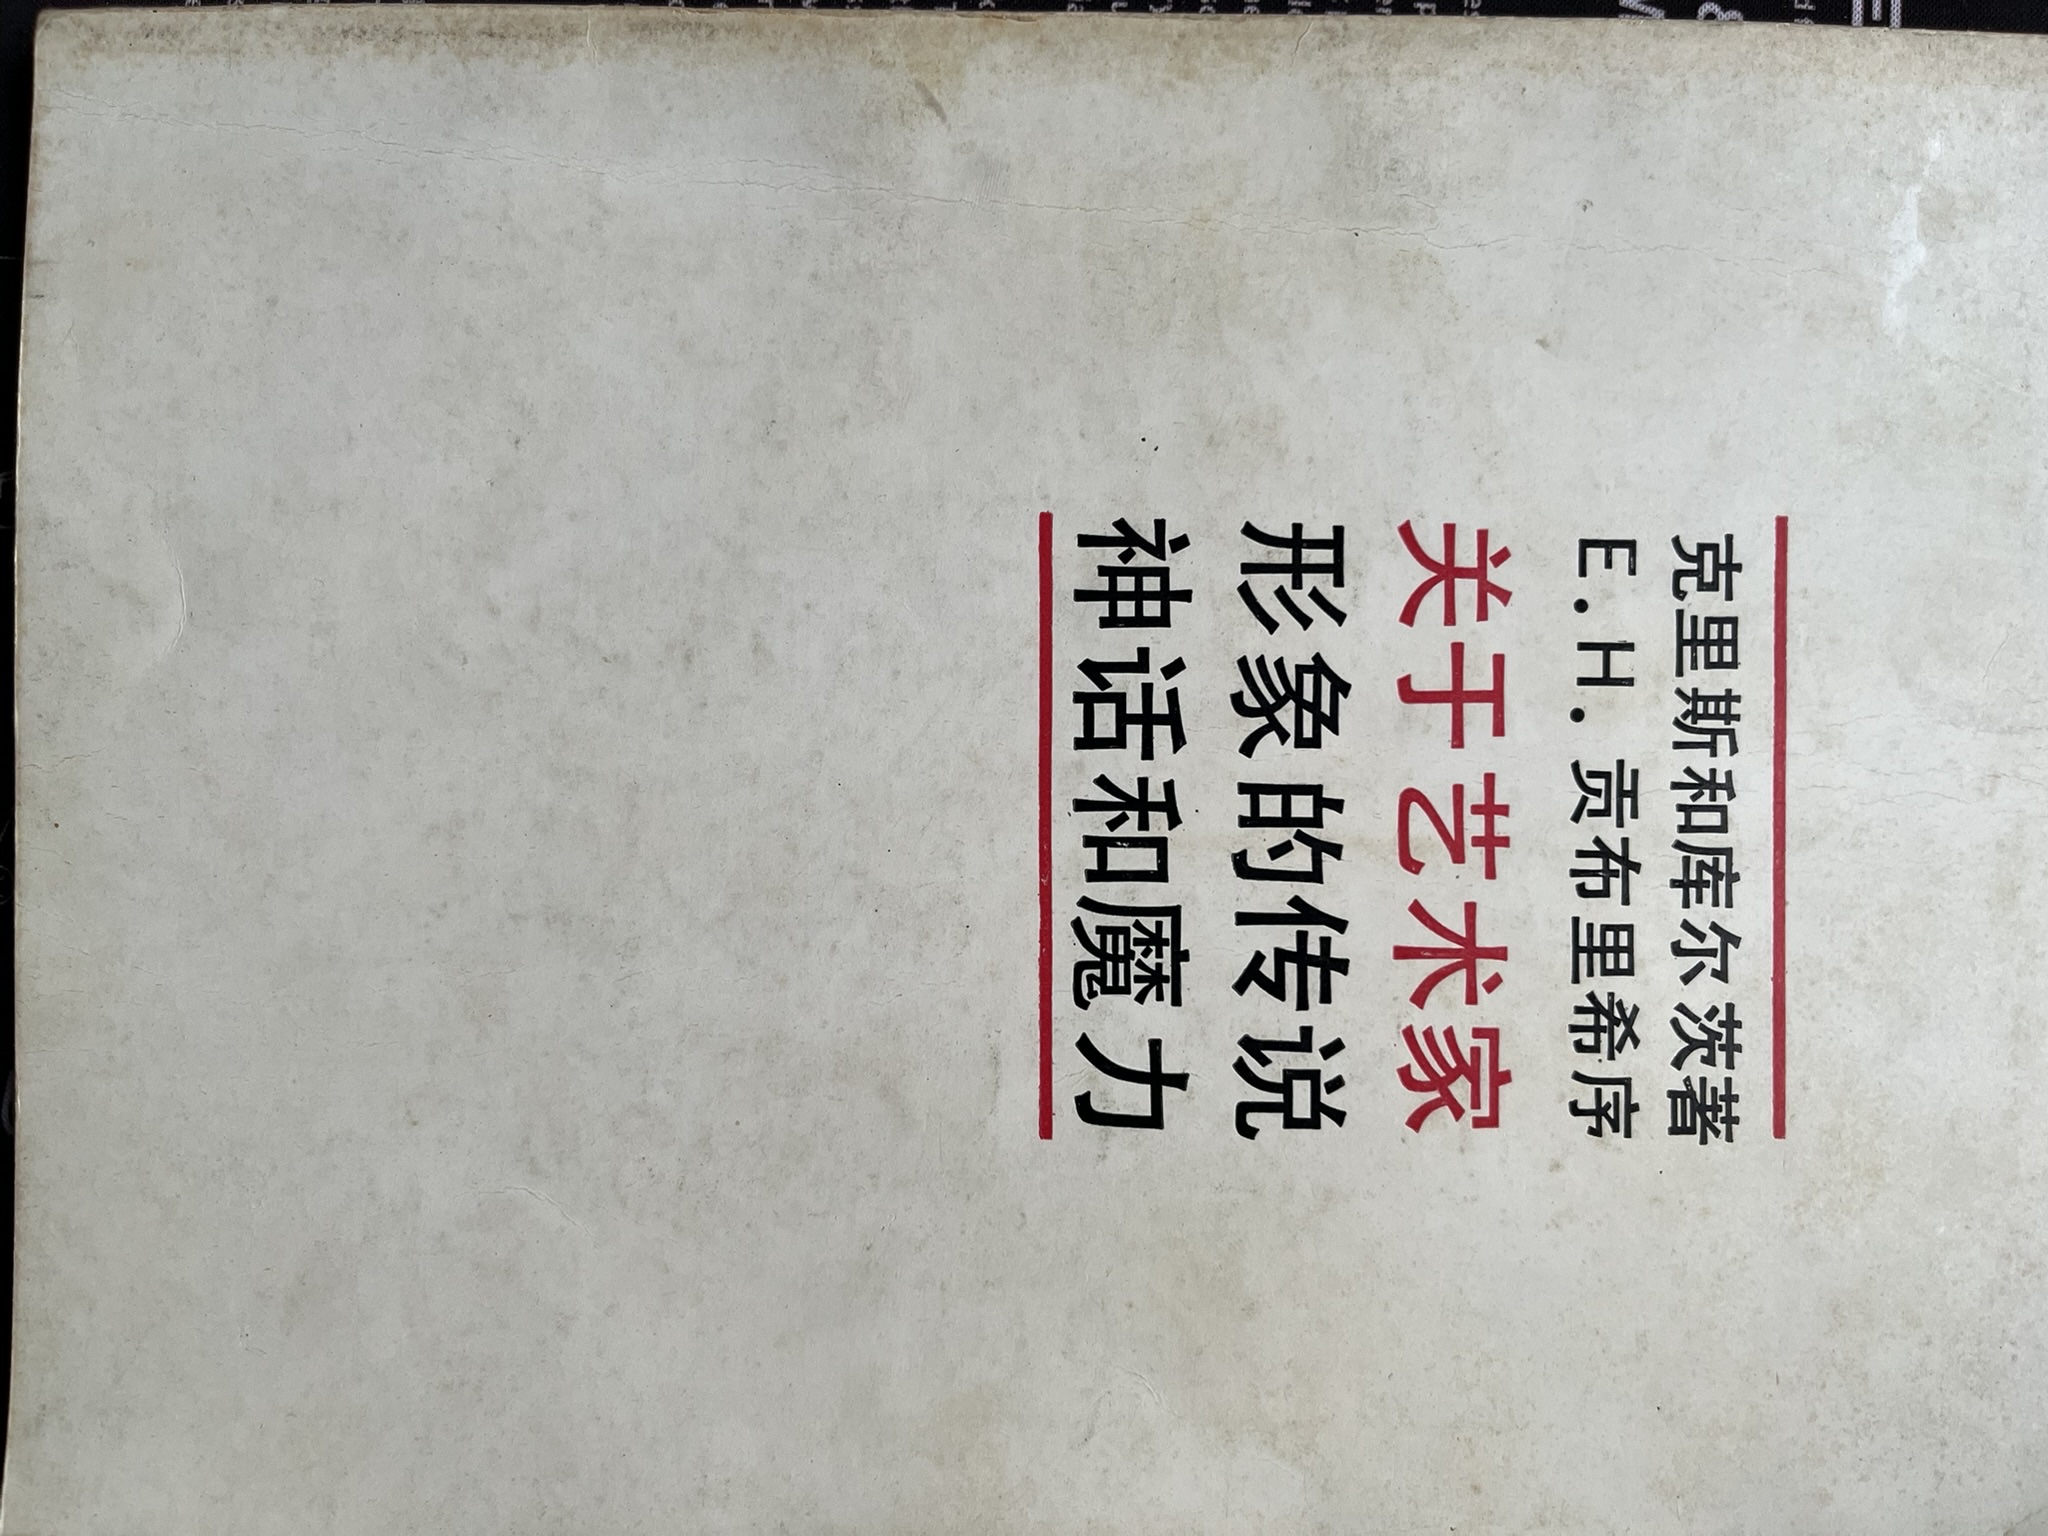 克里斯和库尔茨著
E.H.贡布里希序
关于艺术家
形象的传说
神话和魔力